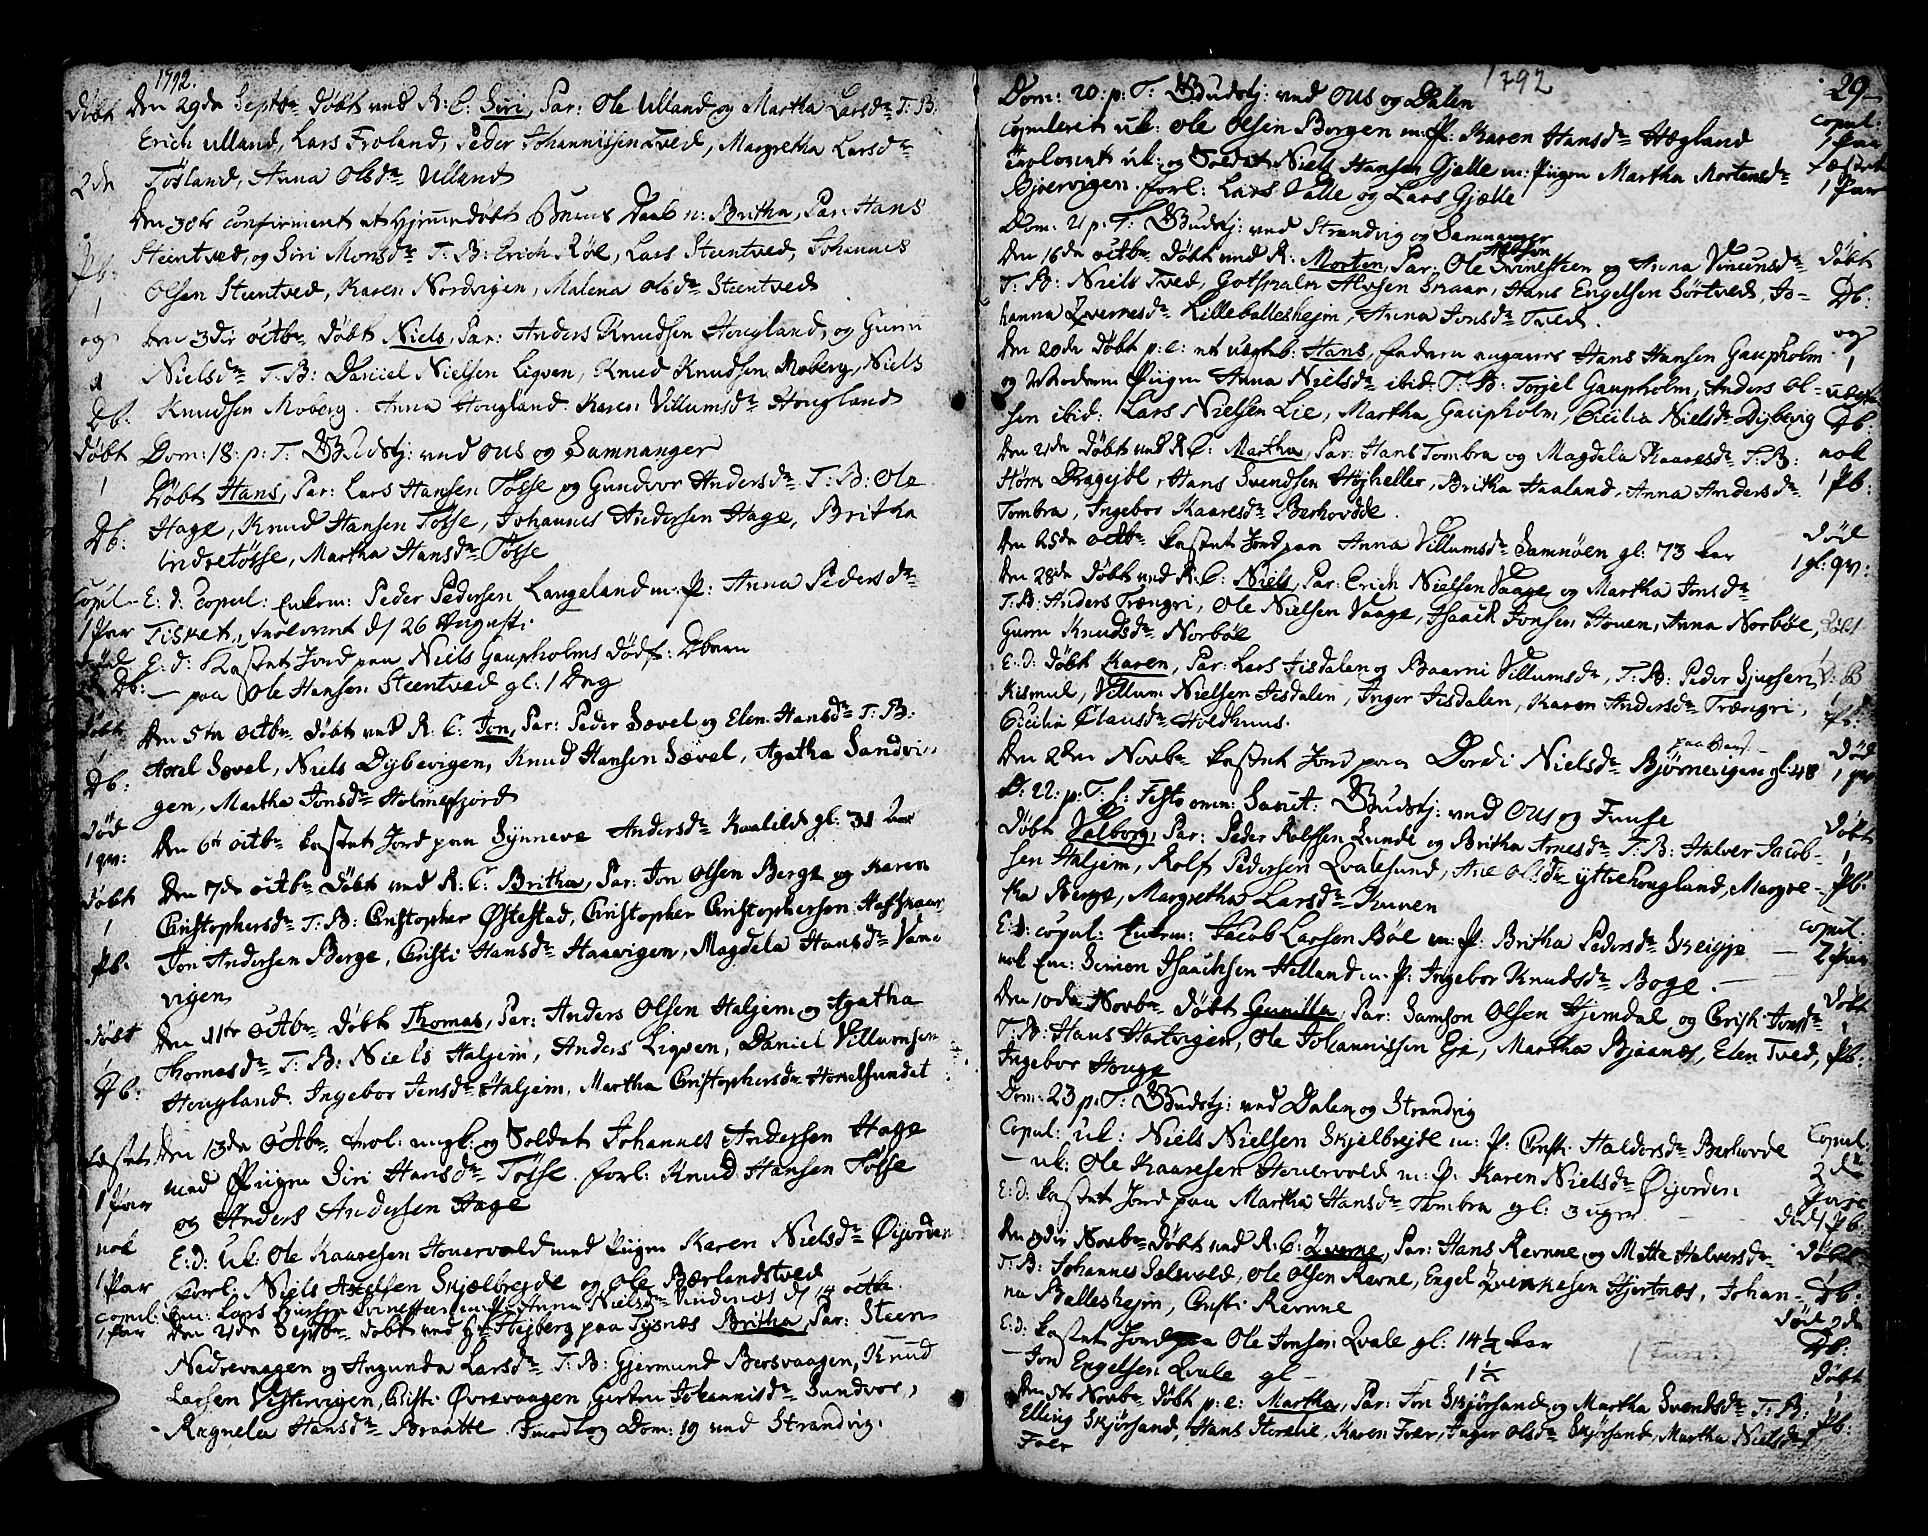 1792.
Døbt Den 29de Septbr Døbt ved R: C: Siri, Par: Ole Ulland og Martha Larsdr T: B:
Erich Ulland, Lars Froland, Peder Johannissen Tved, Margretha Larsdr
2de Tøsland, Anna Olsdr Ulland
Den 30te confirmeret et hjemmedøbt Daab n: Britha, Par: Hans
Pb: Steentved, og Siri Monsdr T: B: Erich Røe, Lars Steentved, Johannes
1 Olsen Steentved, Karen Nordvigen, Malena Olsdr Steentved
og Den 3die Octbr Døbt Niels, Par: Anders Knudsen Hougland, og Guru
1 Nielsdr T: B: Daniel Nielsen Ligven, Knud Knudsen Moberg, Niels
Db: Knudsen Moberg. Anna Hougland. Karen Villumsdr Hougland
Døbt Dom: 18: p: T. Gudstj: ved Ous og Samnanger
1 Døbt Hans, Par: Lars Hansen Tøsse og Gundvor Andersdr T: B: Ole
Db: Hage, Knud Hansen Tøsse, Johannes Andersen Hage, Britha
Indretøsse, Martha Hansdr Tøsse
Copul E: d: Copul: Enkem: Peder Pedersen Langeland m: P: Anna Pedersdr
1 Par Tisket, trolovet d/ 26 Augusti.
død E: d: Kastet Jord paa Niels Gaupholms Dødf: Dbarn
Db: — paa Ole Hansen Steentved gl: 1 Dag
døbt Den 5te Octbr Døbt ved R: C: Jon, Par: Peder Sævel og Elen Hansdr T: B:
1 Axel Sævel, Niels Dybevigen, Knud Hansen Sævel, Agatha Sandvi-
Db: gen, Martha Jonsdr Holmefjord
Død Den 6te Octbr kastet Jord paa Synneve Andersdr Kaalild gl: 31 Aar
1 qv:
døbt Den 7de Octbr Døbt ved R: C: Britha, Par: Jon Olsen Berge og Karen
1 Christophersdr T: B: Christopher Østestad, Christopher Christophersen Hafskaar
Pb: Jon Andersen Berge, Christi Hansdr Haavigen, Magdela Hansdr Vaa-
vigen
døbt Den 11te Octbr Døbt Thomas, Par: Anders Olsen Haljem og Agatha
1 Thomasdr T: B: Niels Haljem, Anders Ligven, Daniel Villumsen
Db: Hougland. Ingebor Jensdr Haljem, Martha Christophersdr Hovelsundet
Fæstet Den 13de Octbr trol: ungk: og Soldat Johannes Andersen Hage
1 Par med Pigen Siri Hansdr Tøsse. forl: Knud Hansen Tøsse
og Anders Andersen Hage
nok E: d: Uk: Ole Kaaresen Houevold med Pigen Karen Nielsdr Øijorden
1 Par forl: Niels Axelsen Skjælbrejde og Ole Bærlandstved
copul: Em: Lars Svinesteen m: P: Anna Nielsdr Vindenæs d/ 14 Octbr
1 Par Den 21de Septbr døbt ved Hr Hejberg paa Tysnæs Britha, Par: Steen
Nedrevaagen og Angunda Larsdr T: B: Gjermund Bersvaagen, Knud
Larsen Vestervigen, Christi Øvrevaagen Gertru Johannisdr Sundvor,
Ragnela Hansdr Braatte. Dom: 19 ved Strandvig.
1792
29
Dom: 20: p: T: Gudstj: ved Ous og Dalen
Copuleret Uk: Ole Olsen Borgen m: P: Karen Hansdr Hægland copul: 1 Par
Trolovet Uk: og Soldat Niels Hansen Gjelle m: Pigen Martha Mortensdr Fæstet
Bjørvigen. forl: Lars Valle og Lars Gjelle 1 Par
Dom: 21 p: T: Gudstj: ved Strandvig og Samnanger
Den 16de Octbr Døbt ved R: Morten, Par: Ole Svinesteen og Anna Vincensdr Døbt
T: B: Niels Tved, Gotskalk Alvsen Skaar, Hans Engelsen Sørtved, Jo- Db:
hanna Qvernesdr Lilleballeshejm, Anna Jonsdr Tved. og
Den 20de Døbt p: e: et uægteb: Hans, faderen angaves Hans Hansen Gaupholm 1
og Moderen Pigen Anna Nielsdr ibid: T: B: Torjel Gaupholm, Anders Ol- uægte
sen ibid: Lars Nielsen Lie, Martha Gaupholm, Cicilia Nielsdr Dybevig Db:
Den 21de Døbt ved R: C: Martha, Par: Hans Tombra og Magdela Kaaresdr T: B: nok
Dragejde, Hans Svendsen Højheller, Britha Haaland, Anna Andersdr 1 Pb:
Tombra, Ingebor Kaaresdr Berhovde.
Den 25de Octbr kastet Jord paa Anna Villumsdr Samnøen gl: 73 Aar Død 1 gl: qv:
Den 28de Døbt ved R: C: Niels, Par: Erich Nielsen Vaage og Martha Jonsdr
T: B: Anders Trængri, Ole Nielsen Vaage, Isaach Jonsen Houen, Anna Norbøe, Døbt
Guru Knudsdr Norbøe
E: d: Døbt Karen, Par: Lars Iisdalen og Baarni Villumsdr, T: B: Peder Sjursen D: B
Kismul, Villum Nielsen Iisdalen, Inger Iisdalen, Karen Andersdr Trængri, Pb:
Cicilia Clausdr Holdhuus.
Den 2den Novbr kastet Jord paa Dordi Nielsdr Bjørnevigen gl: 48 Død 1 qv:
D: 22: p: T: f: Festo omn: Sanct: Gudstj: ved Ous og Fuuse
Døbt Valborg, Par: Peder Rolfsen Lunde og Britha Arnesdr T: B: Halver Jacob- Døbt 1
sen Haljem, Rolf Pedersen Qvalesund, Ane Olsdr Yttrehougland, Margre- Pb:
ta Berge, Margretha Larsdr Kuven
E: d: copul: Enkem: Jacob Larsen Bøe m: P: Britha Pedersdr Skeisje — copul: 2 Par
nok Em: Simon Isaachsen Helland m: P: Ingebor Knudsdr Boge. —
Den 10de Novbr Døbt Gunilla, Par: Samson Olsen Hjemdal og Christi Jonsdr Døbt 1
T: B: Hans Hartvigen, Ole Johannissen Eje, Martha Bjaanæs, Elen Tved, Pb:
Ingebor Houge
Dom: 23 p: T: Gudstj: ved Dalen og Strandvig
Copul: Uk: Niels Nielsen Skjelbrejde m: P: Christi Haldorsdr Berhovde Copul:
— Uk: Ole Kaaresen Houevold m: P: Karen Nielsdr Øijorden 2de
E: d: kastet Jord paa Martha Hansdr Tombra gl: 3 uger Parje død 1 Pb:
Den 9die Novbr Døbt ved R: C: Qverne, Par: Hans Revne og Mette Halversdr Døbt
T: B: Johannes Solsvold, Ole Olsen Revne, Engel Qvernesen Hjertnæs, Johan- Db:
na Balleshejm, Christi Revnne
E: d: kastet Jord paa Ole Jonsen Qvale gl: 14 1/2 Aar Død 2de
— Jon Engelsen Qvale gl — 1 1/2 Db:
Den 5te Novbr Døbt p: e: Martha, Par: Jon Skjørsand og Martha Svendsdr T: B: Døbt 1
Elling Skjørsand, Hans Storelie, Karen Foer, Inger Olsdr Skjørsand, Martha Nielsdr Pb:
Foer